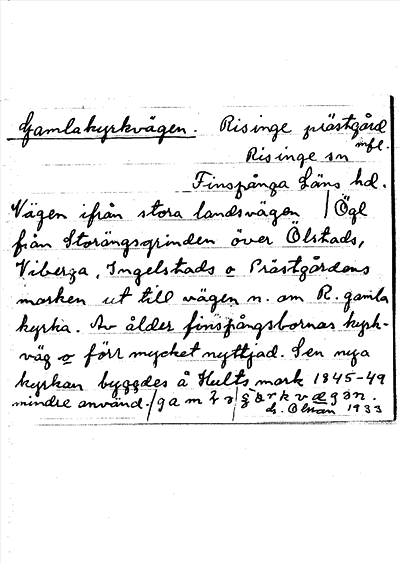 Gamlakyrkvägen. Risinge prästgård
mfl.
Risinge sn
Finspånga Läns hd.
Vägen ifrån stora landsvägen / Ögl
från Storängsgrinden över Ölstads,
Viberga, Ingelstads o Prästgårdens
marken ut till vägen n. om R. gamla
kyrka. Av ålder finspångsbornas kyrk-
väg o förr mycket nyttjad. Sen nya
kyrkan byggdes å Hults mark 1845-49
mindre använd.
1933